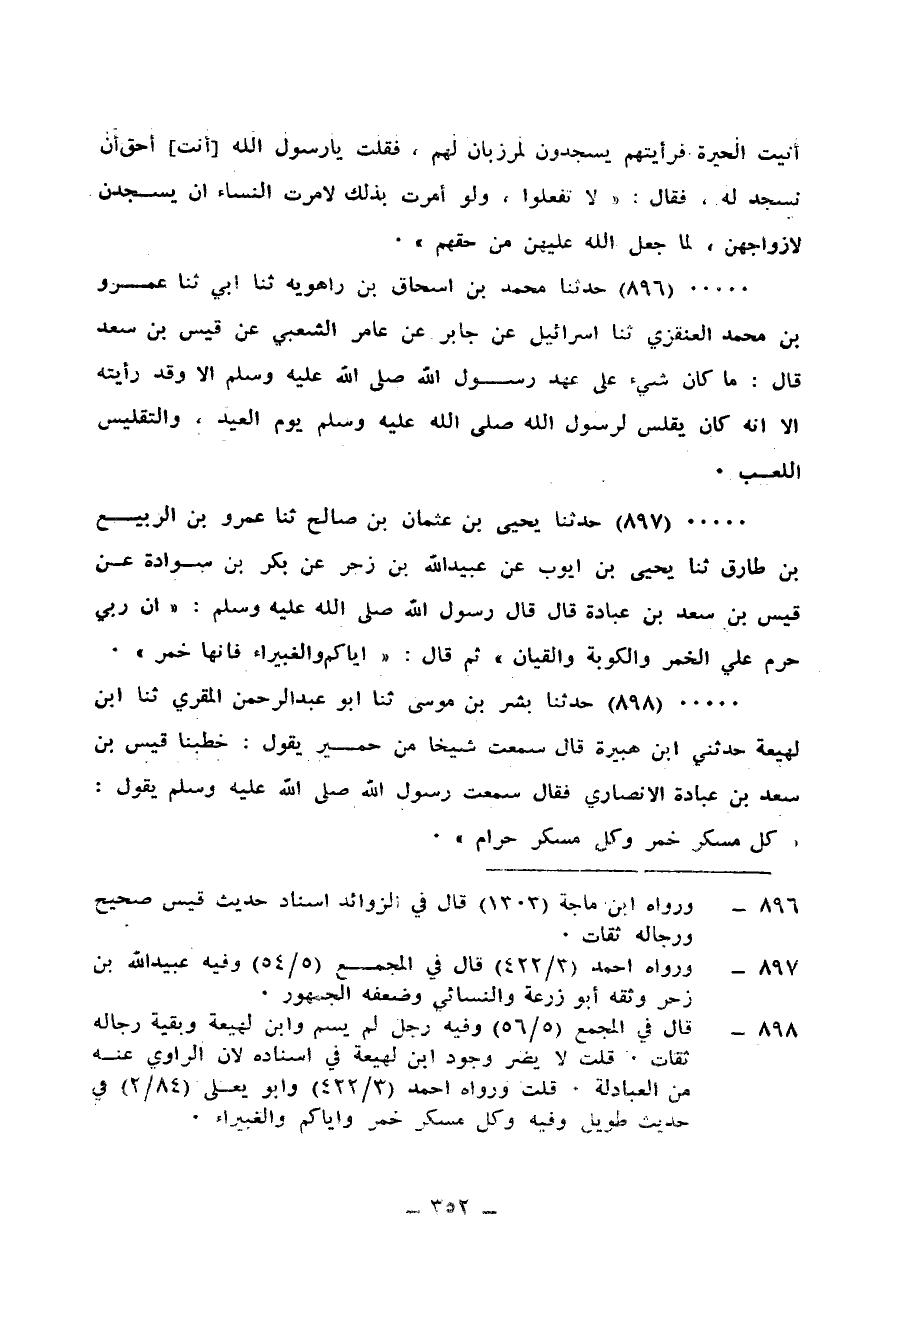 أتيت الحيرة فرأيتهم يسجدون لمرزبان لهم ، فقلت يارسول الله [أنت] أحق أن
نسجد له ، فقال : « لا تفعلوا ، ولو أمرت بذلك لامرت النساء ان يسـجدن
لازواجهن ، لما جعل الله عليهن من حقهم » ٠
٠٠٠٠٠ (٨٩٦) حدثنا محمد بن اسحاق بن راهويه ثنا ابي ثنا عمـــرو
بن محمد العنقزي ثنا اسرائيل عن جابر عن عامر الشعبي عن قيس بن سعد
قال : ما كان شيء على عهد رســـول الله صلى الله عليه وسلم الا وقد رأيته
الا انه كان يقلس لرسول الله صلى الله عليه وسلم يوم العيد ، والتقليس
اللعـب ٠
٠٠٠٠٠ (٨٩٧) حدثنا يحيى بن عثمان بن صالح ثنا عمرو بن الربيـــع
بن طارق ثنا يحيى بن ايوب عن عبيدالله بن زحر عن بكر بن سـوادة عـن
قيس بن سعد بن عبادة قال قال رسول الله صلى الله عليه وسلم : « ان ربي
حرم علي الخمر والكوبة والقيان » ثم قال : « اياكم والغبيراء فانها خمر » ٠
٠٠٠٠٠ (٨٩٨) حدثنا بشر بن موسى ثنا ابو عبدالرحمن المقري ثنا ابن
لهيعة حدثني ابن هبيرة قال سمعت شيخا من حمـــير يقول : خطبنا قيس بن
سعد بن عبادة الانصاري فقال سمعت رسول الله صلى الله عليه وسلم يقول :
« كل مسكر خمر وكل مسكر حرام » ٠
٨٩٦ ــ ورواه ابن ماجة (١٣٠٣) قال في الزوائد اسناد حديث قيس صحيح
ورجاله ثقات ٠
٨٩٧ ــ ورواه احمد (٤٢٢/٣) قال في المجمـــع (٥٤/٥) وفيه عبيدالله بن
زحر وثقه أبو زرعة والنسائي وضعفه الجمهور ٠
٨٩٨ ــ قال في المجمع (٥٦/٥) وفيه رجل لم يسم وابن لهيعة وبقية رجاله
ثقات ٠ قلت لا يضر وجود ابن لهيعة في اسناده لان الراوي عنـه
من العبادلة ٠ قلت ورواه احمد (٤٢٢/٣) وابو يعـلى (٢/٨٤) في
حديث طويل وفيه وكل مسكر خمر واياكم والغبيراء ٠
ــ ٣٥٢ ــ